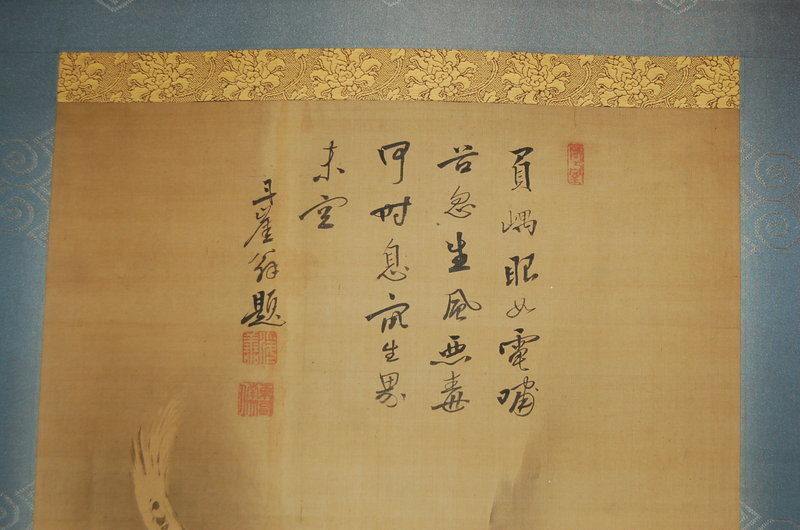 負嵎眼如電嘯
谷忽生風悪毒
何时息衆生界
未空
丹崖翁題